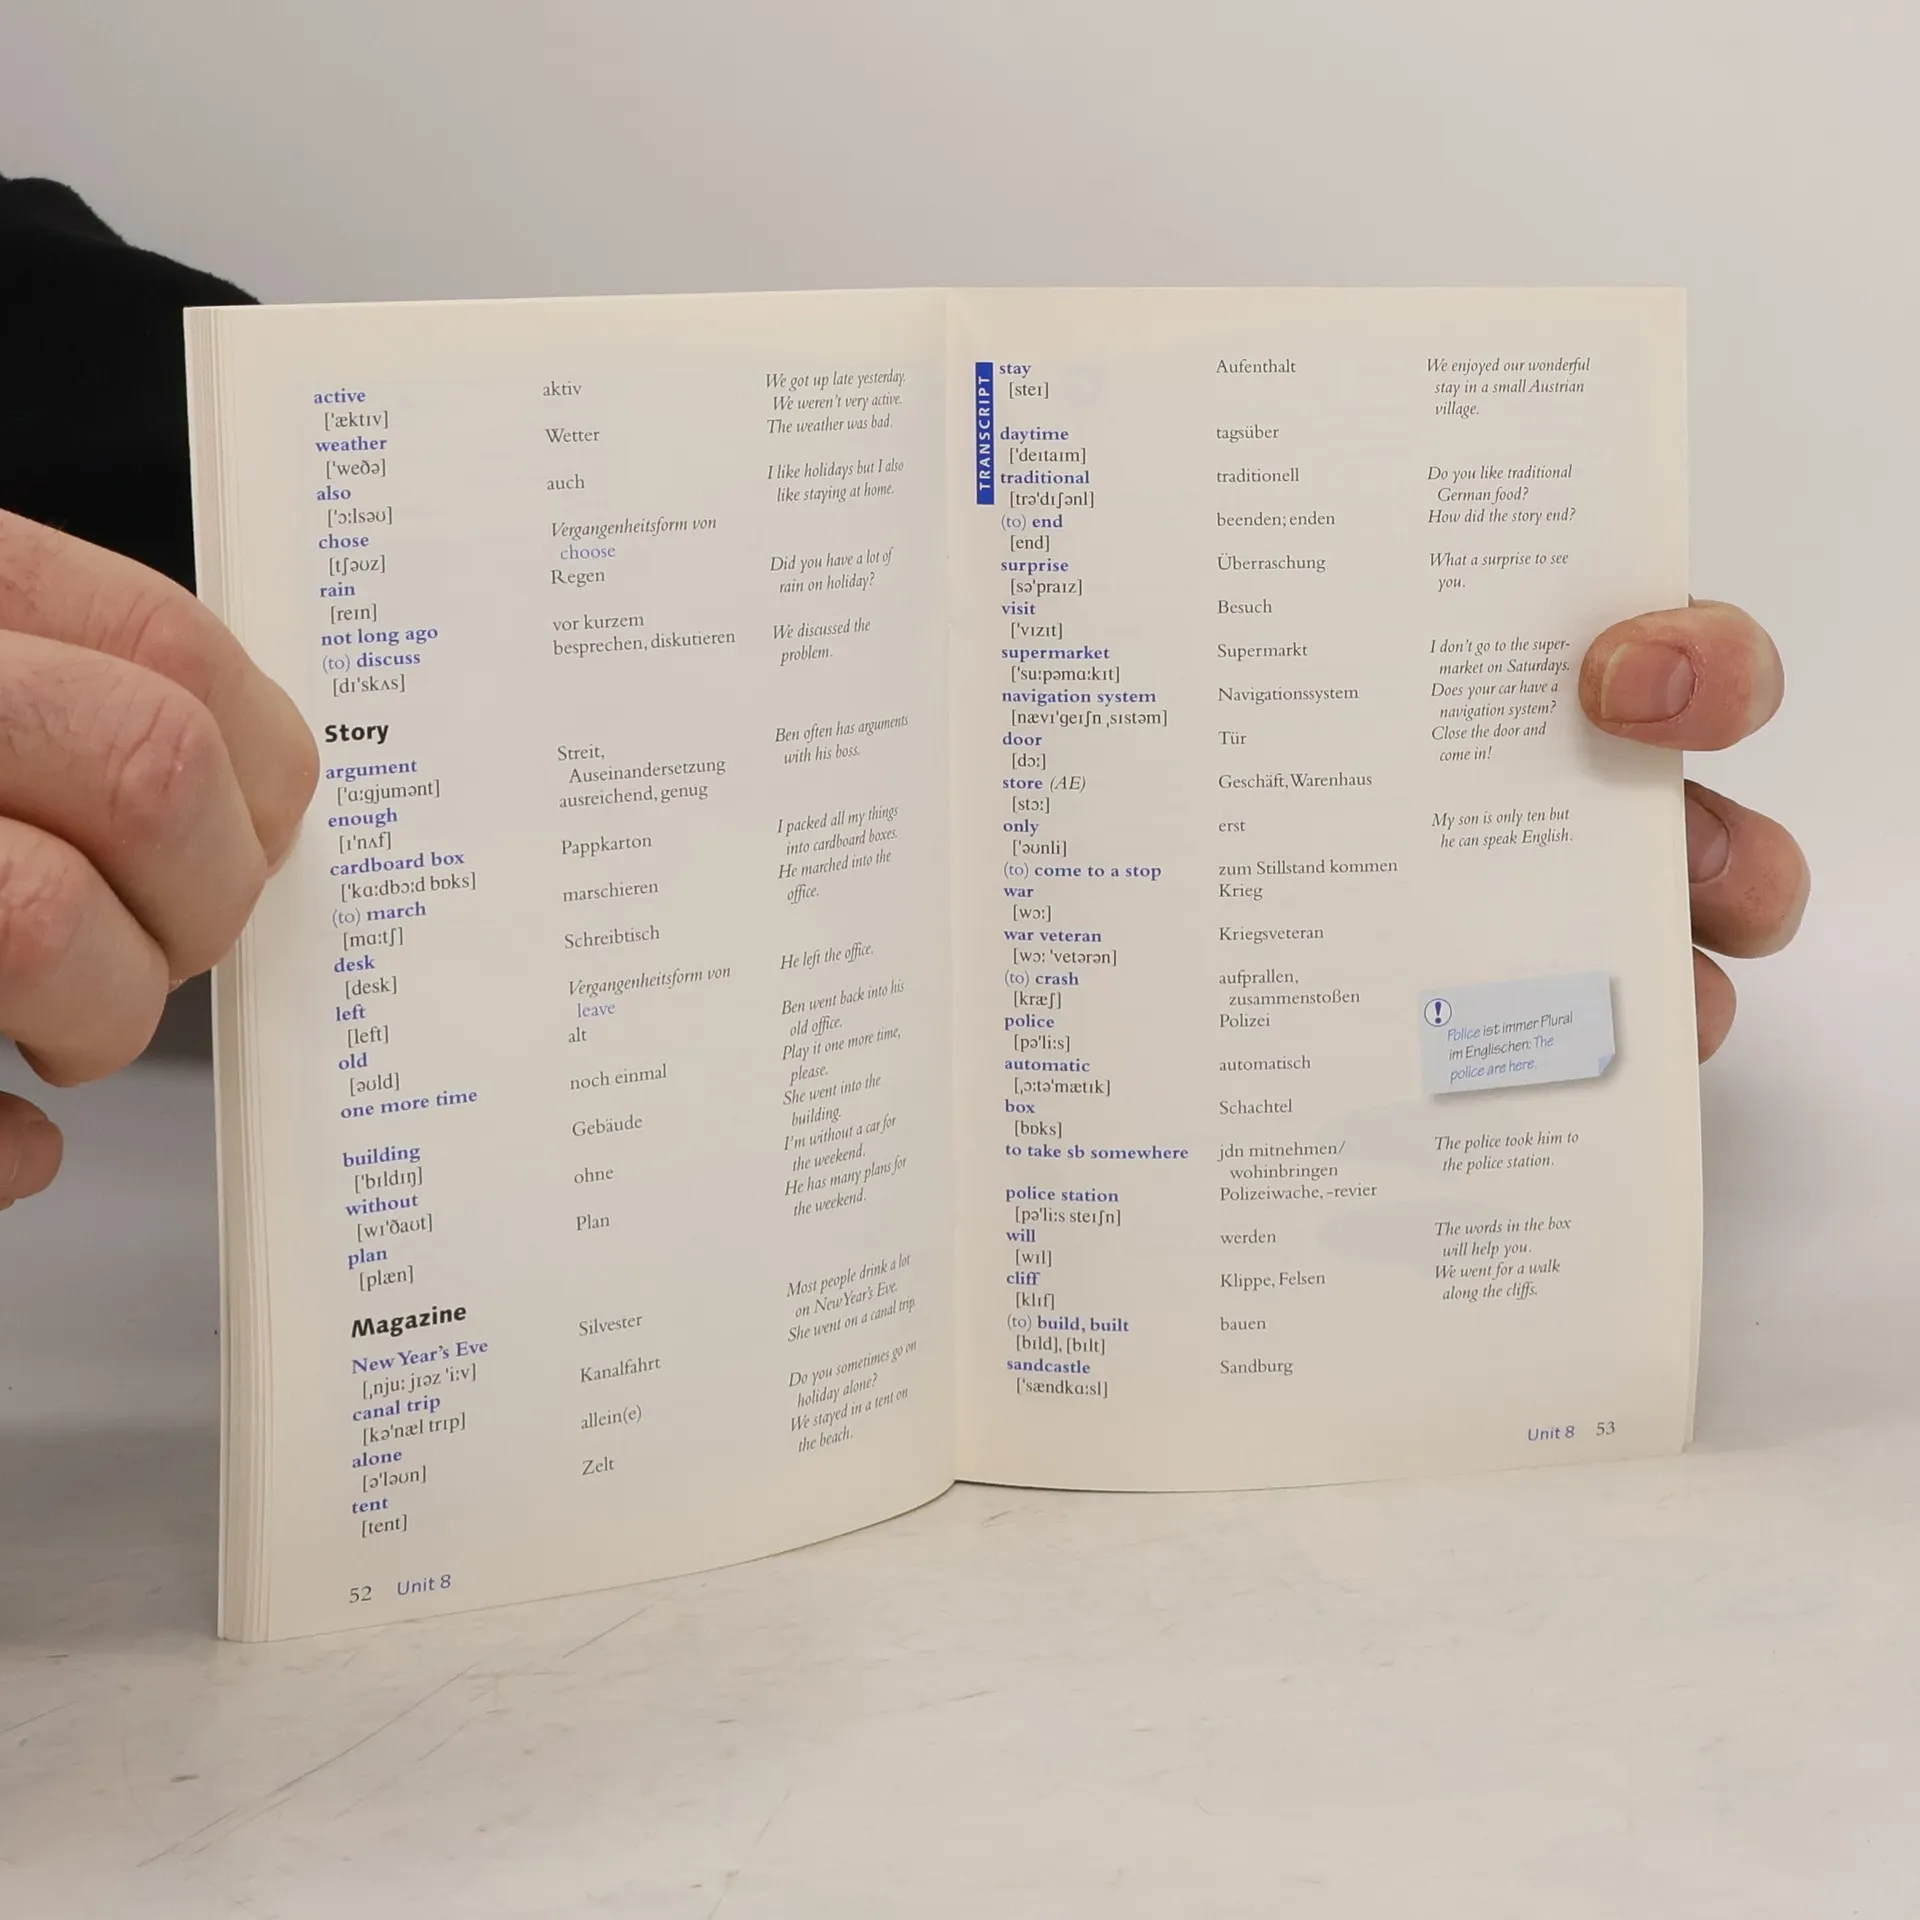 active
['æktɪv]
aktiv
We got up late yesterday.
We weren't very active.
weather
['weðə]
Wetter
The weather was bad.
also
['ɔ:lsəʊ]
auch
I like holidays but I also
like staying at home.
chose
[tʃəʊz]
Vergangenheitsform von
choose
rain
[reɪn]
Regen
Did you have a lot of
rain on holiday?
not long ago
vor kurzem
(to) discuss
[dɪ'skʌs]
besprechen, diskutieren
We discussed the
problem.
Story
argument
['ɑ:gjumənt]
Streit,
Auseinandersetzung
Ben often has arguments
with his boss.
enough
[ɪ'nʌf]
ausreichend, genug
cardboard box
['kɑ:dbɔ:d bɒks]
Pappkarton
I packed all my things
into cardboard boxes.
(to) march
[mɑ:tʃ]
marschieren
He marched into the
office.
desk
[desk]
Schreibtisch
left
[left]
Vergangenheitsform von
leave
He left the office.
old
[əʊld]
alt
Ben went back into his
old office.
one more time
noch einmal
Play it one more time,
please.
building
['bɪldɪŋ]
Gebäude
She went into the
building.
without
[wɪ'ðaʊt]
ohne
I'm without a car for
the weekend.
plan
[plæn]
Plan
He has many plans for
the weekend.
Magazine
New Year's Eve
[ˌnju: jɪəz 'i:v]
Silvester
Most people drink a lot
on New Year's Eve.
canal trip
[kə'næl trɪp]
Kanalfahrt
She went on a canal trip.
alone
[ə'ləʊn]
allein(e)
Do you sometimes go on
holiday alone?
tent
[tent]
Zelt
We stayed in a tent on
the beach.
52 Unit 8
TRANSCRIPT
stay
[steɪ]
Aufenthalt
We enjoyed our wonderful
stay in a small Austrian
village.
daytime
['deɪtaɪm]
tagsüber
traditional
[trə'dɪʃənl]
traditionell
Do you like traditional
German food?
(to) end
[end]
beenden; enden
How did the story end?
surprise
[sə'praɪz]
Überraschung
What a surprise to see
you.
visit
['vɪzɪt]
Besuch
supermarket
['su:pəmɑ:kɪt]
Supermarkt
I don't go to the super-
market on Saturdays.
navigation system
[nævɪ'geɪʃn ˌsɪstəm]
Navigationssystem
Does your car have a
navigation system?
door
[dɔ:]
Tür
Close the door and
come in!
store (AE)
[stɔ:]
Geschäft, Warenhaus
only
['əʊnli]
erst
My son is only ten but
he can speak English.
(to) come to a stop
zum Stillstand kommen
war
[wɔ:]
Krieg
war veteran
[wɔ: 'vetərən]
Kriegsveteran
(to) crash
[kræʃ]
aufprallen,
zusammenstoßen
police
[pə'li:s]
Polizei
Police ist immer Plural
im Englischen: The
police are here.
automatic
[ˌɔ:tə'mætɪk]
automatisch
box
[bɒks]
Schachtel
to take sb somewhere
jdn mitnehmen/
wohinbringen
The police took him to
the police station.
police station
[pə'li:s steɪʃn]
Polizeiwache, -revier
will
[wɪl]
werden
The words in the box
will help you.
cliff
[klɪf]
Klippe, Felsen
We went for a walk
along the cliffs.
(to) build, built
[bɪld], [bɪlt]
bauen
sandcastle
['sændkɑ:sl]
Sandburg
Unit 8 53